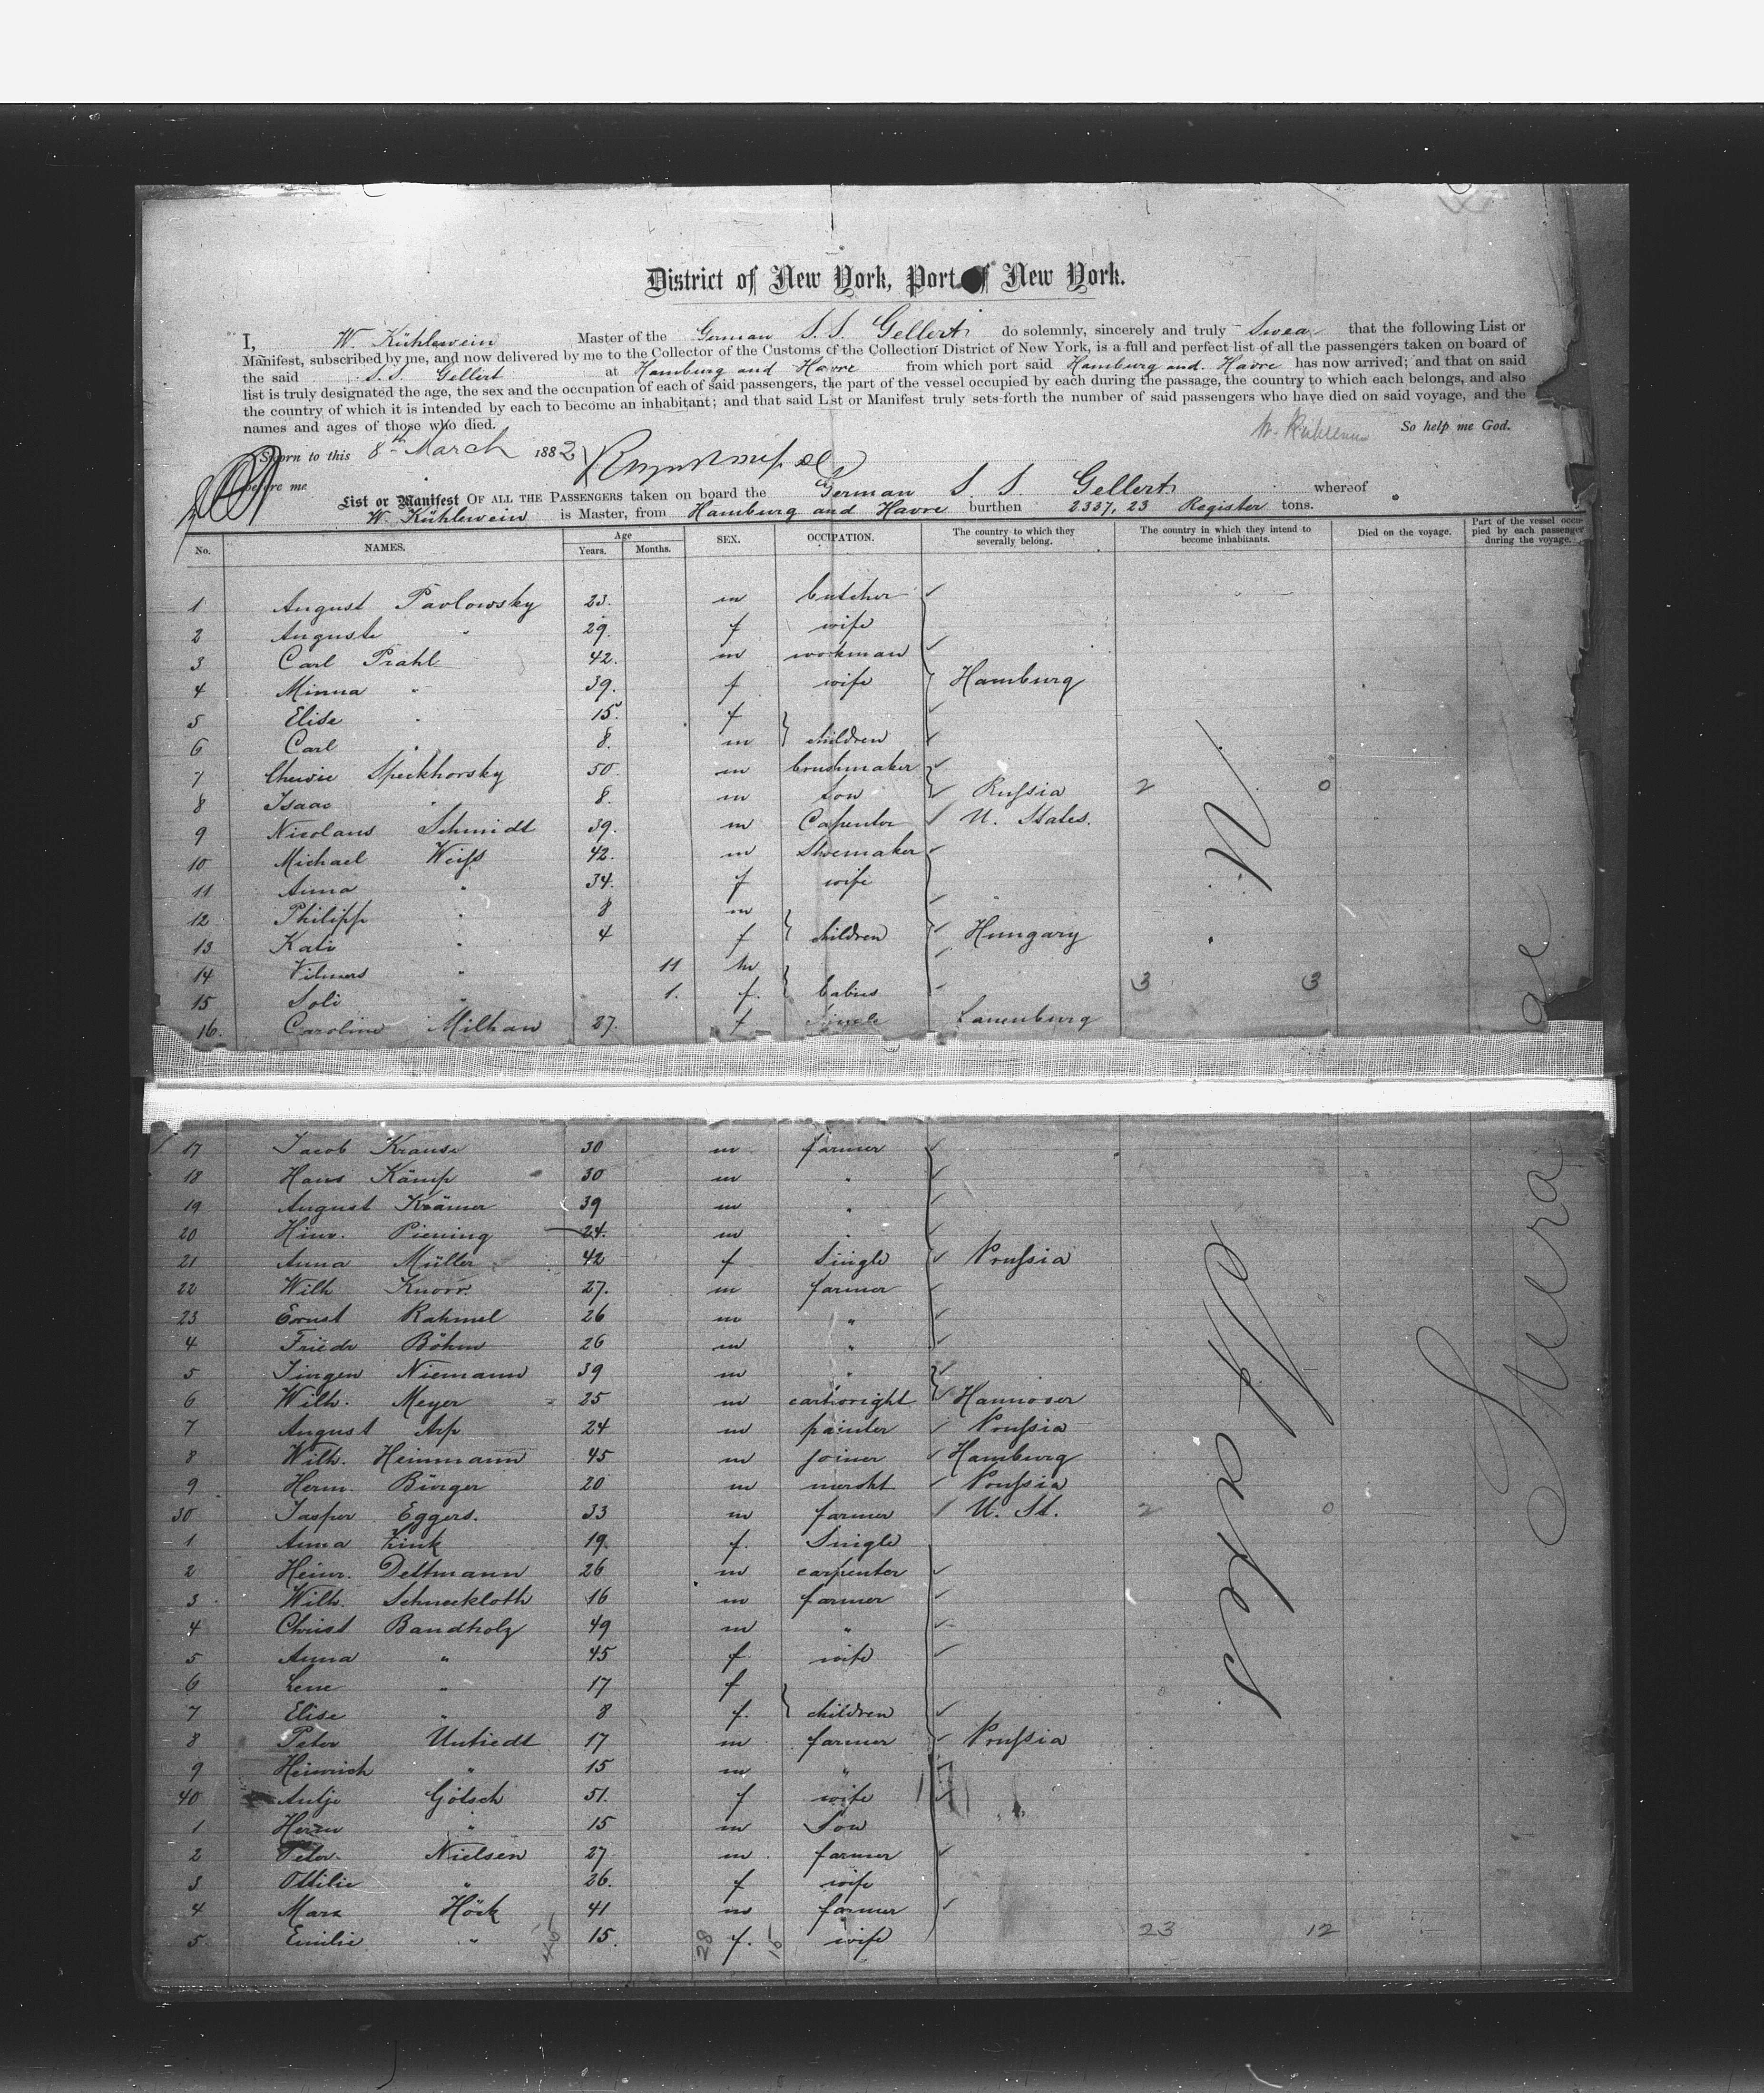 District of New York, Port of New York.
I, W. Kühlewein Master of the German S. S. Gellert do solemnly, sincerely and truly Swear that the following List or
Manifest, subscribed by me, and now delivered by me to the Collector of the Customs of the Collection District of New York, is a full and perfect list of all the passengers taken on board of
the said S. S. Gellert at Hamburg and Havre from which port said Hamburg and Havre has now arrived; and that on said
list is truly designated the age, the sex and the occupation of each of said passengers, the part of the vessel occupied by each during the passage, the country to which each belongs, and also
the country of which it is intended by each to become an inhabitant; and that said List or Manifest truly sets forth the number of said passengers who have died on said voyage, and the
names and ages of those who died. So help me God.
Sworn to this 8th March 1882
before me
List or Manifest OF ALL THE PASSENGERS taken on board the German S. S. Gellert whereof
W. Kühlewein is Master, from Hamburg and Havre burthen 2337,23 Register tons.
No. NAMES. Age Years. Months. SEX. OCCUPATION. The country to which they severally belong. The country in which they intend to become inhabitants. Died on the voyage. Part of the vessel occupied by each passenger during the voyage.
1 August Pavlowsky 23. m butcher
2 Auguste " 29. f wife
3 Carl Prahl 42. m workman
4 Minna " 39. f wife Hamburg
5 Elise " 15. f
6 Carl " 8. m children
7 Speckhorsky 50. m brushmaker
8 Isaac " 8. m son Russia 2 0
9 Nicolaus Schmidt 39. m Capenter U. States.
10 Michael Weiss 42. m Shoemaker
11 Anna " 34. f wife
12 Philipp " 8 m
13 Kati " 4 f children Hungary
14 " 11 m
15 " 1. f. babies 3 3
16. Caroline Milhan 27. f Single Lauenburg
17 Jacob Krause 30 m farmer
18 Hans Kämp 30 m "
19 August Krämer 39 m "
20 Hinr. Piening 24. m "
21 Anna Müller 42 f Single Prussia
22 Wilh. Knorr. 27. m farmer
23 Ernst Rahmel 26 m "
4 Friedr Böhm 26 m "
5 Jürgen Niemann 39 m "
6 Wilh. Meyer 25 m cartwright Hannover
7 August Arp 24 m painter Prussia
8 Wilh. Heinmann 45 m joiner Hamburg
9 Herm. Bürger 20 m mercht Prussia
30 Jasper Eggers. 33 m farmer U. St. 2 0
1 Anna Zink 19. f. Single
2 Heinr. Dettmann 26 m carpenter
3 Wilh. Schneekloth 16 m farmer
4 Christ Bandholz 49 m "
5 Anna " 45 f. wife
6 Lene " 17 f
7 Elise " 8 f. children
8 Peter Untiedt 17 m farmer Prussia
9 Heinrich " 15 m "
40 Antje Götsch 51. f wife
1 " 15 m Son
2 Peter Nielsen 27 m farmer
3 Ottilie " 26. f wife
4 Marx Höck 41 m farmer
5 Emilie " 15. f. wife 23 12
45 28 15